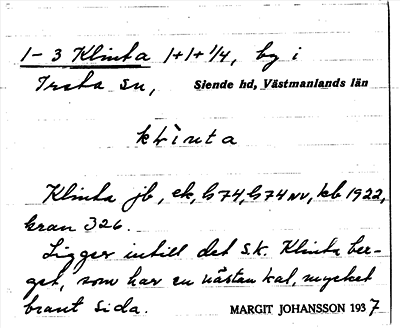 1-3 Klinta 1+1+1/4, by i
Irsta sn, Siende hd, Västmanlands län
klìnta
Klinta jb, ek, G74, G74 NV, kb 1922,
kran 326.
Ligger intill det s.k. Klintaber-
get, som har en nästan kal, mycket
brant sida. MARGIT JOHANSSON 1937